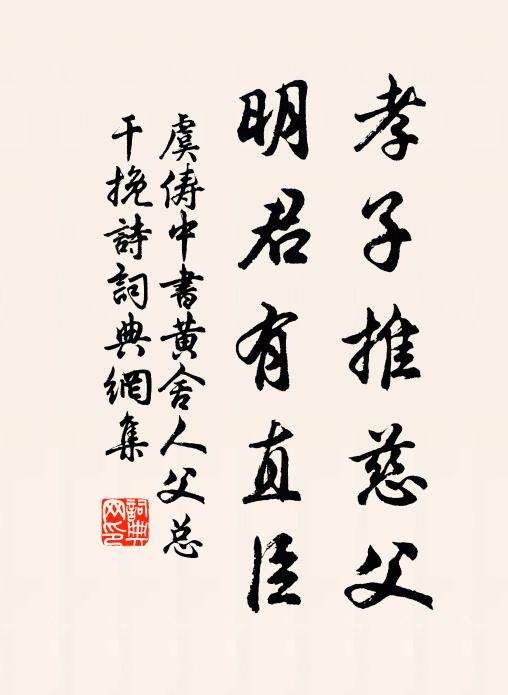 孝子推慈父
明君有直臣
虞儔中書黄舍人父总
干挽詩詞典網集
詞典
网印